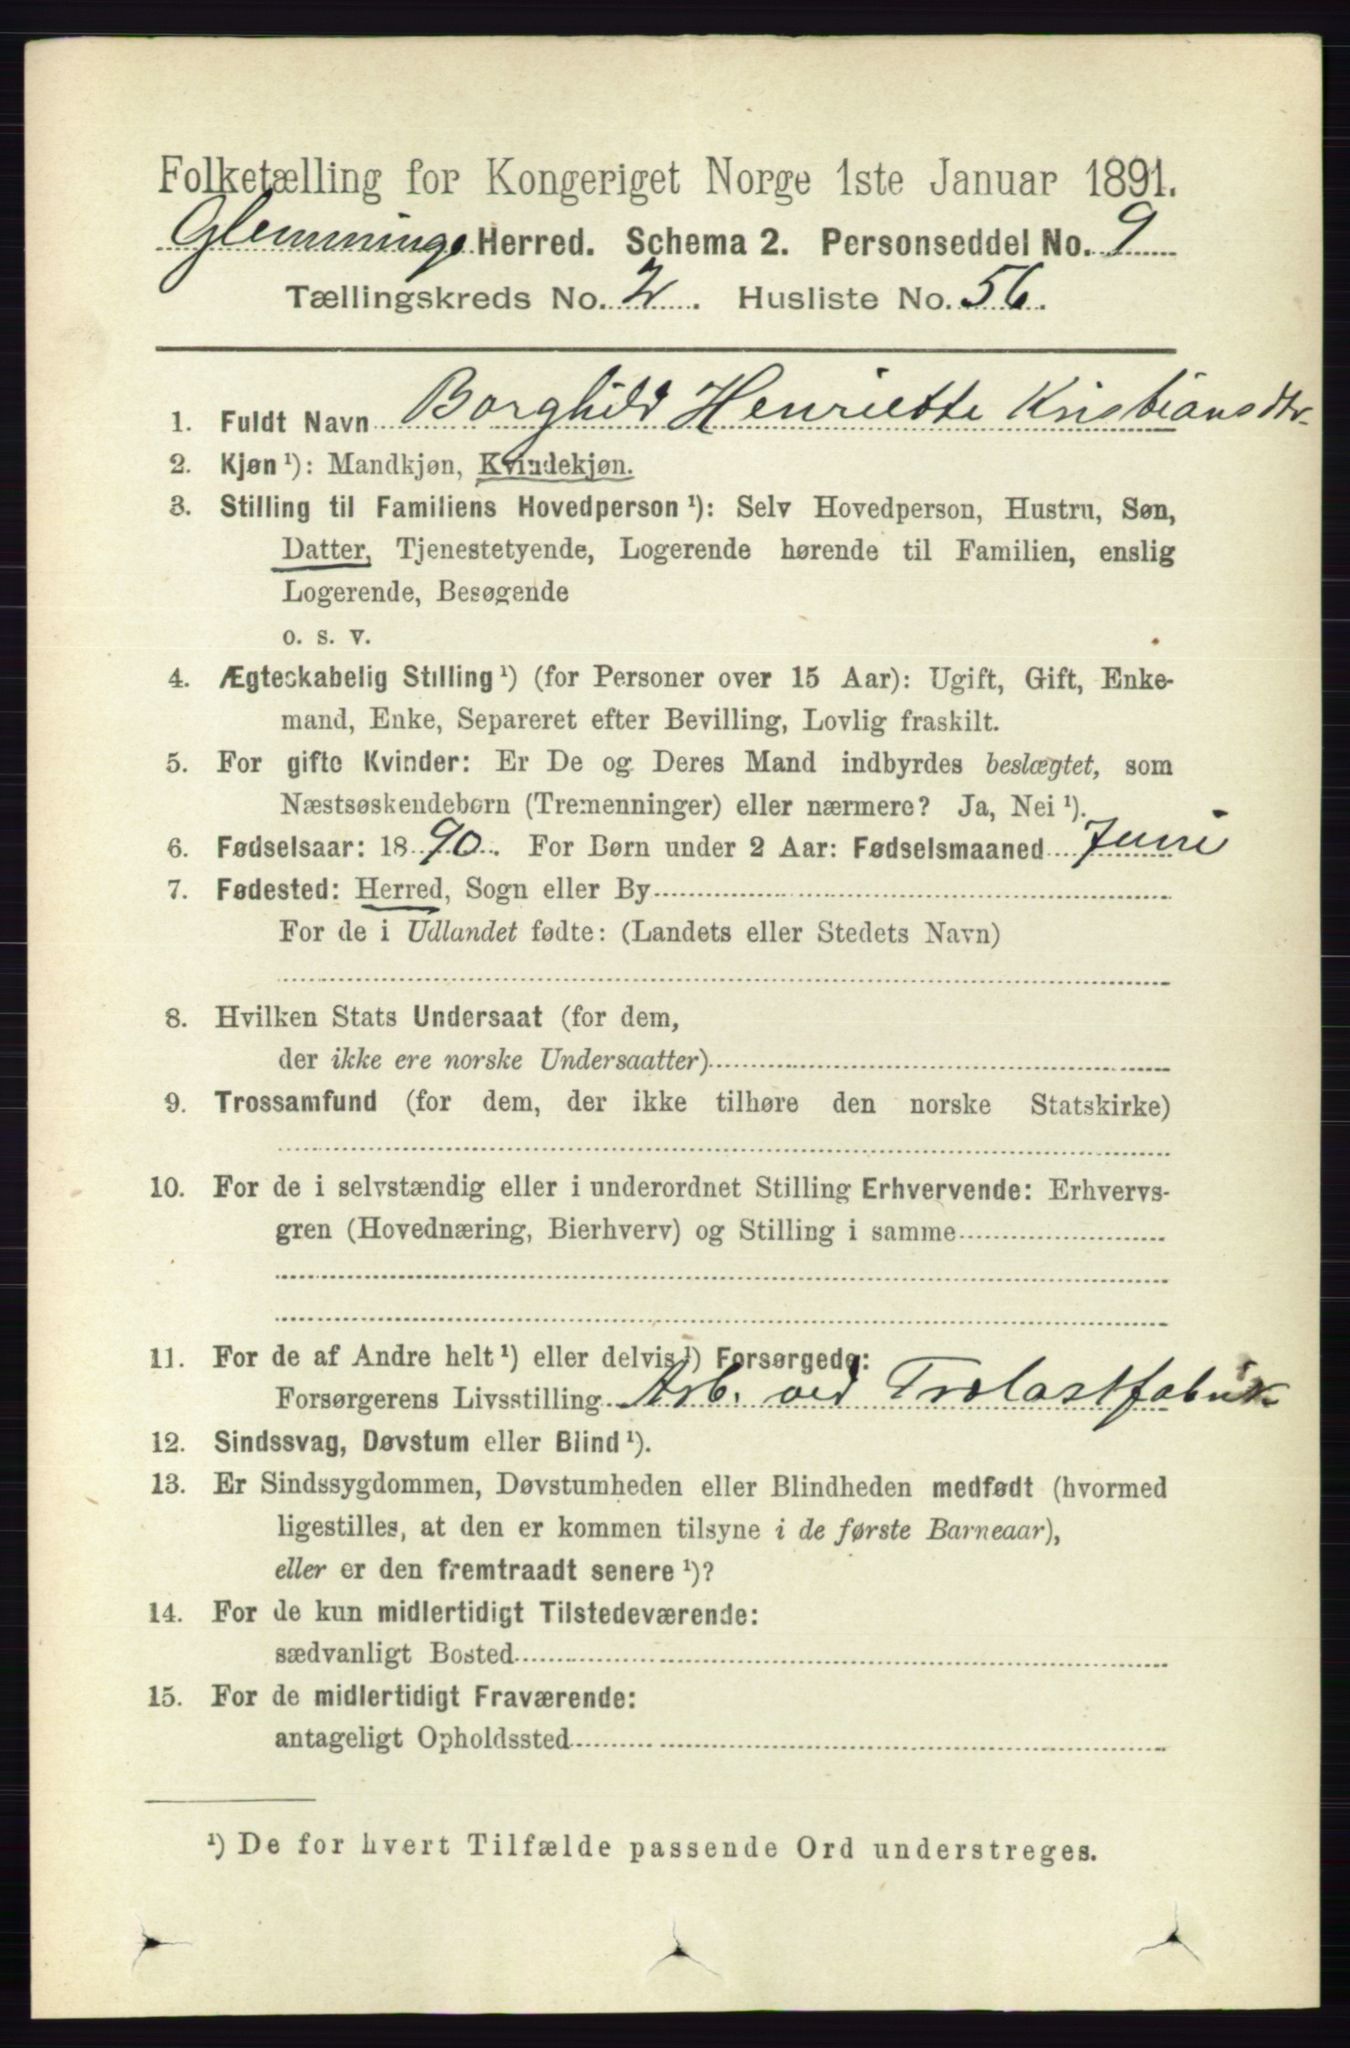 Folketælling for Kongeriget Norge 1ste Januar 1891.
Glemminge Herred. Schema 2. Personseddel No. 9
Tællingskreds No. 2. Husliste No. 56.
1. Fuldt Navn Borghild Henriette Kristiansdtr.
2. Kjøn¹): Mandkjøn, Kvindekjøn.
3. Stilling til Familiens Hovedperson¹): Selv Hovedperson, Hustru, Søn,
Datter, Tjenestetyende, Logerende hørende til Familien, enslig
Logerende, Besøgende
o. s. v.
4. Ægteskabelig Stilling¹) (for Personer over 15 Aar): Ugift, Gift, Enke-
mand, Enke, Separeret efter Bevilling, Lovlig fraskilt.
5. For gifte Kvinder: Er De og Deres Mand indbyrdes beslægtet, som
Næstsøskendebørn (Tremenninger) eller nærmere? Ja, Nei¹).
6. Fødselsaar: 1890. For Børn under 2 Aar: Fødselsmaaned Juni
7. Fødested: Herred, Sogn eller By
For de i Udlandet fødte: (Landets eller Stedets Navn)
8. Hvilken Stats Undersaat (for dem,
der ikke ere norske Undersaatter)
9. Trossamfund (for dem, der ikke tilhøre den norske Statskirke)
10. For de i selvstændig eller i underordnet Stilling Erhvervende: Erhvervs-
gren (Hovednæring, Bierhverv) og Stilling i samme
11. For de af Andre helt¹) eller delvis¹) Forsørgede:
Forsørgerens Livsstilling Arb. ved Trælastfabrik
12. Sindssvag, Døvstum eller Blind¹).
13. Er Sindssygdommen, Døvstumheden eller Blindheden medfødt (hvormed
ligestilles, at den er kommen tilsyne i de første Barneaar),
eller er den fremtraadt senere¹)?
14. For de kun midlertidigt Tilstedeværende:
sædvanligt Bosted
15. For de midlertidigt Fraværende:
antageligt Opholdssted
¹) De for hvert Tilfælde passende Ord understreges.